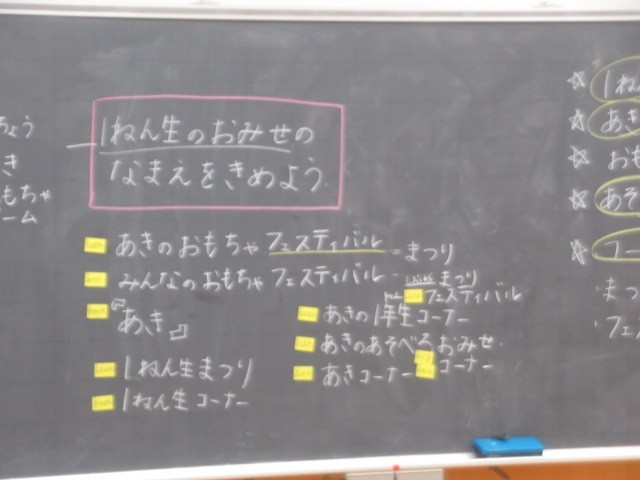 ちょう
き
もちゃ
ーム
1ねん生のおみせの
なまえをきめよう
あきのおもちゃフェスティバル-まつり
みんなのおもちゃフェスティバル-
まつり
フェスティバル
『あき』
あきの1年生コーナー
あきのあそべるおみせ
1ねん生まつり
あきコーナー
コーナー
1ねん生コーナー
☆1ねん
☆あき
☆おも
☆あそ
☆コー
・まつ
・フェス